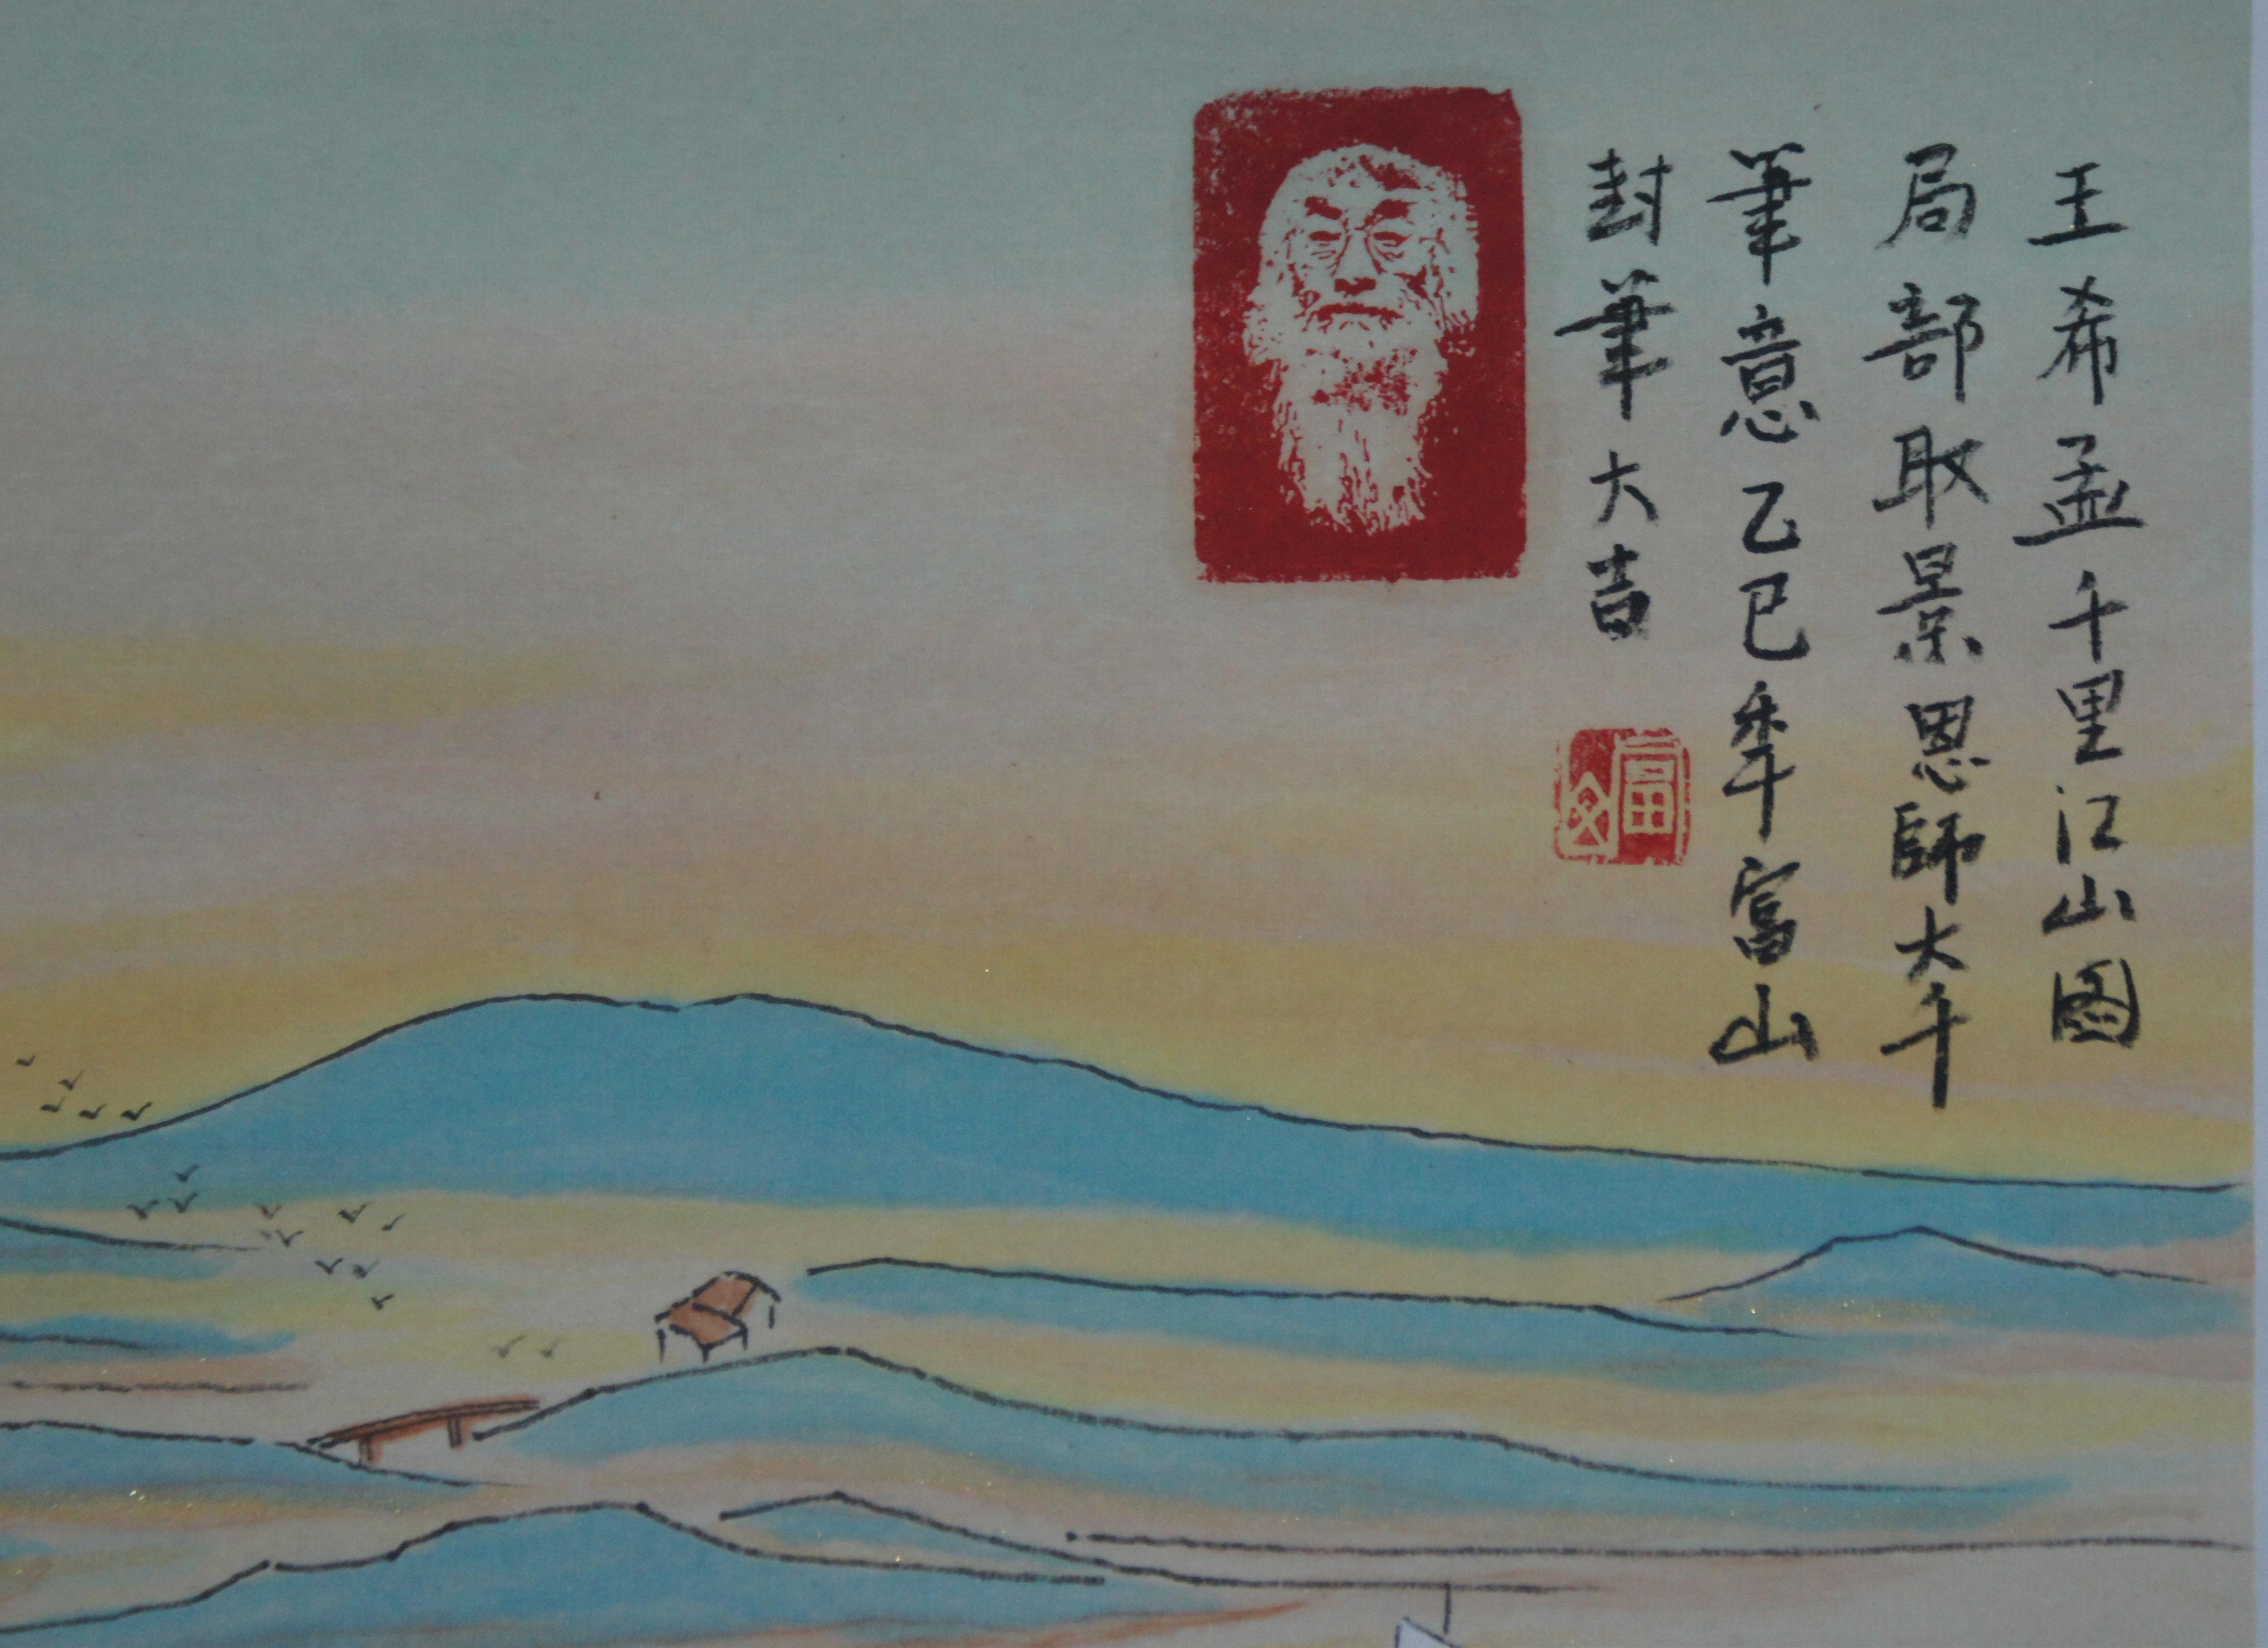 王希孟千里江山图
局部取景恩師大千
筆意乙巳年富山
封筆大吉
富山